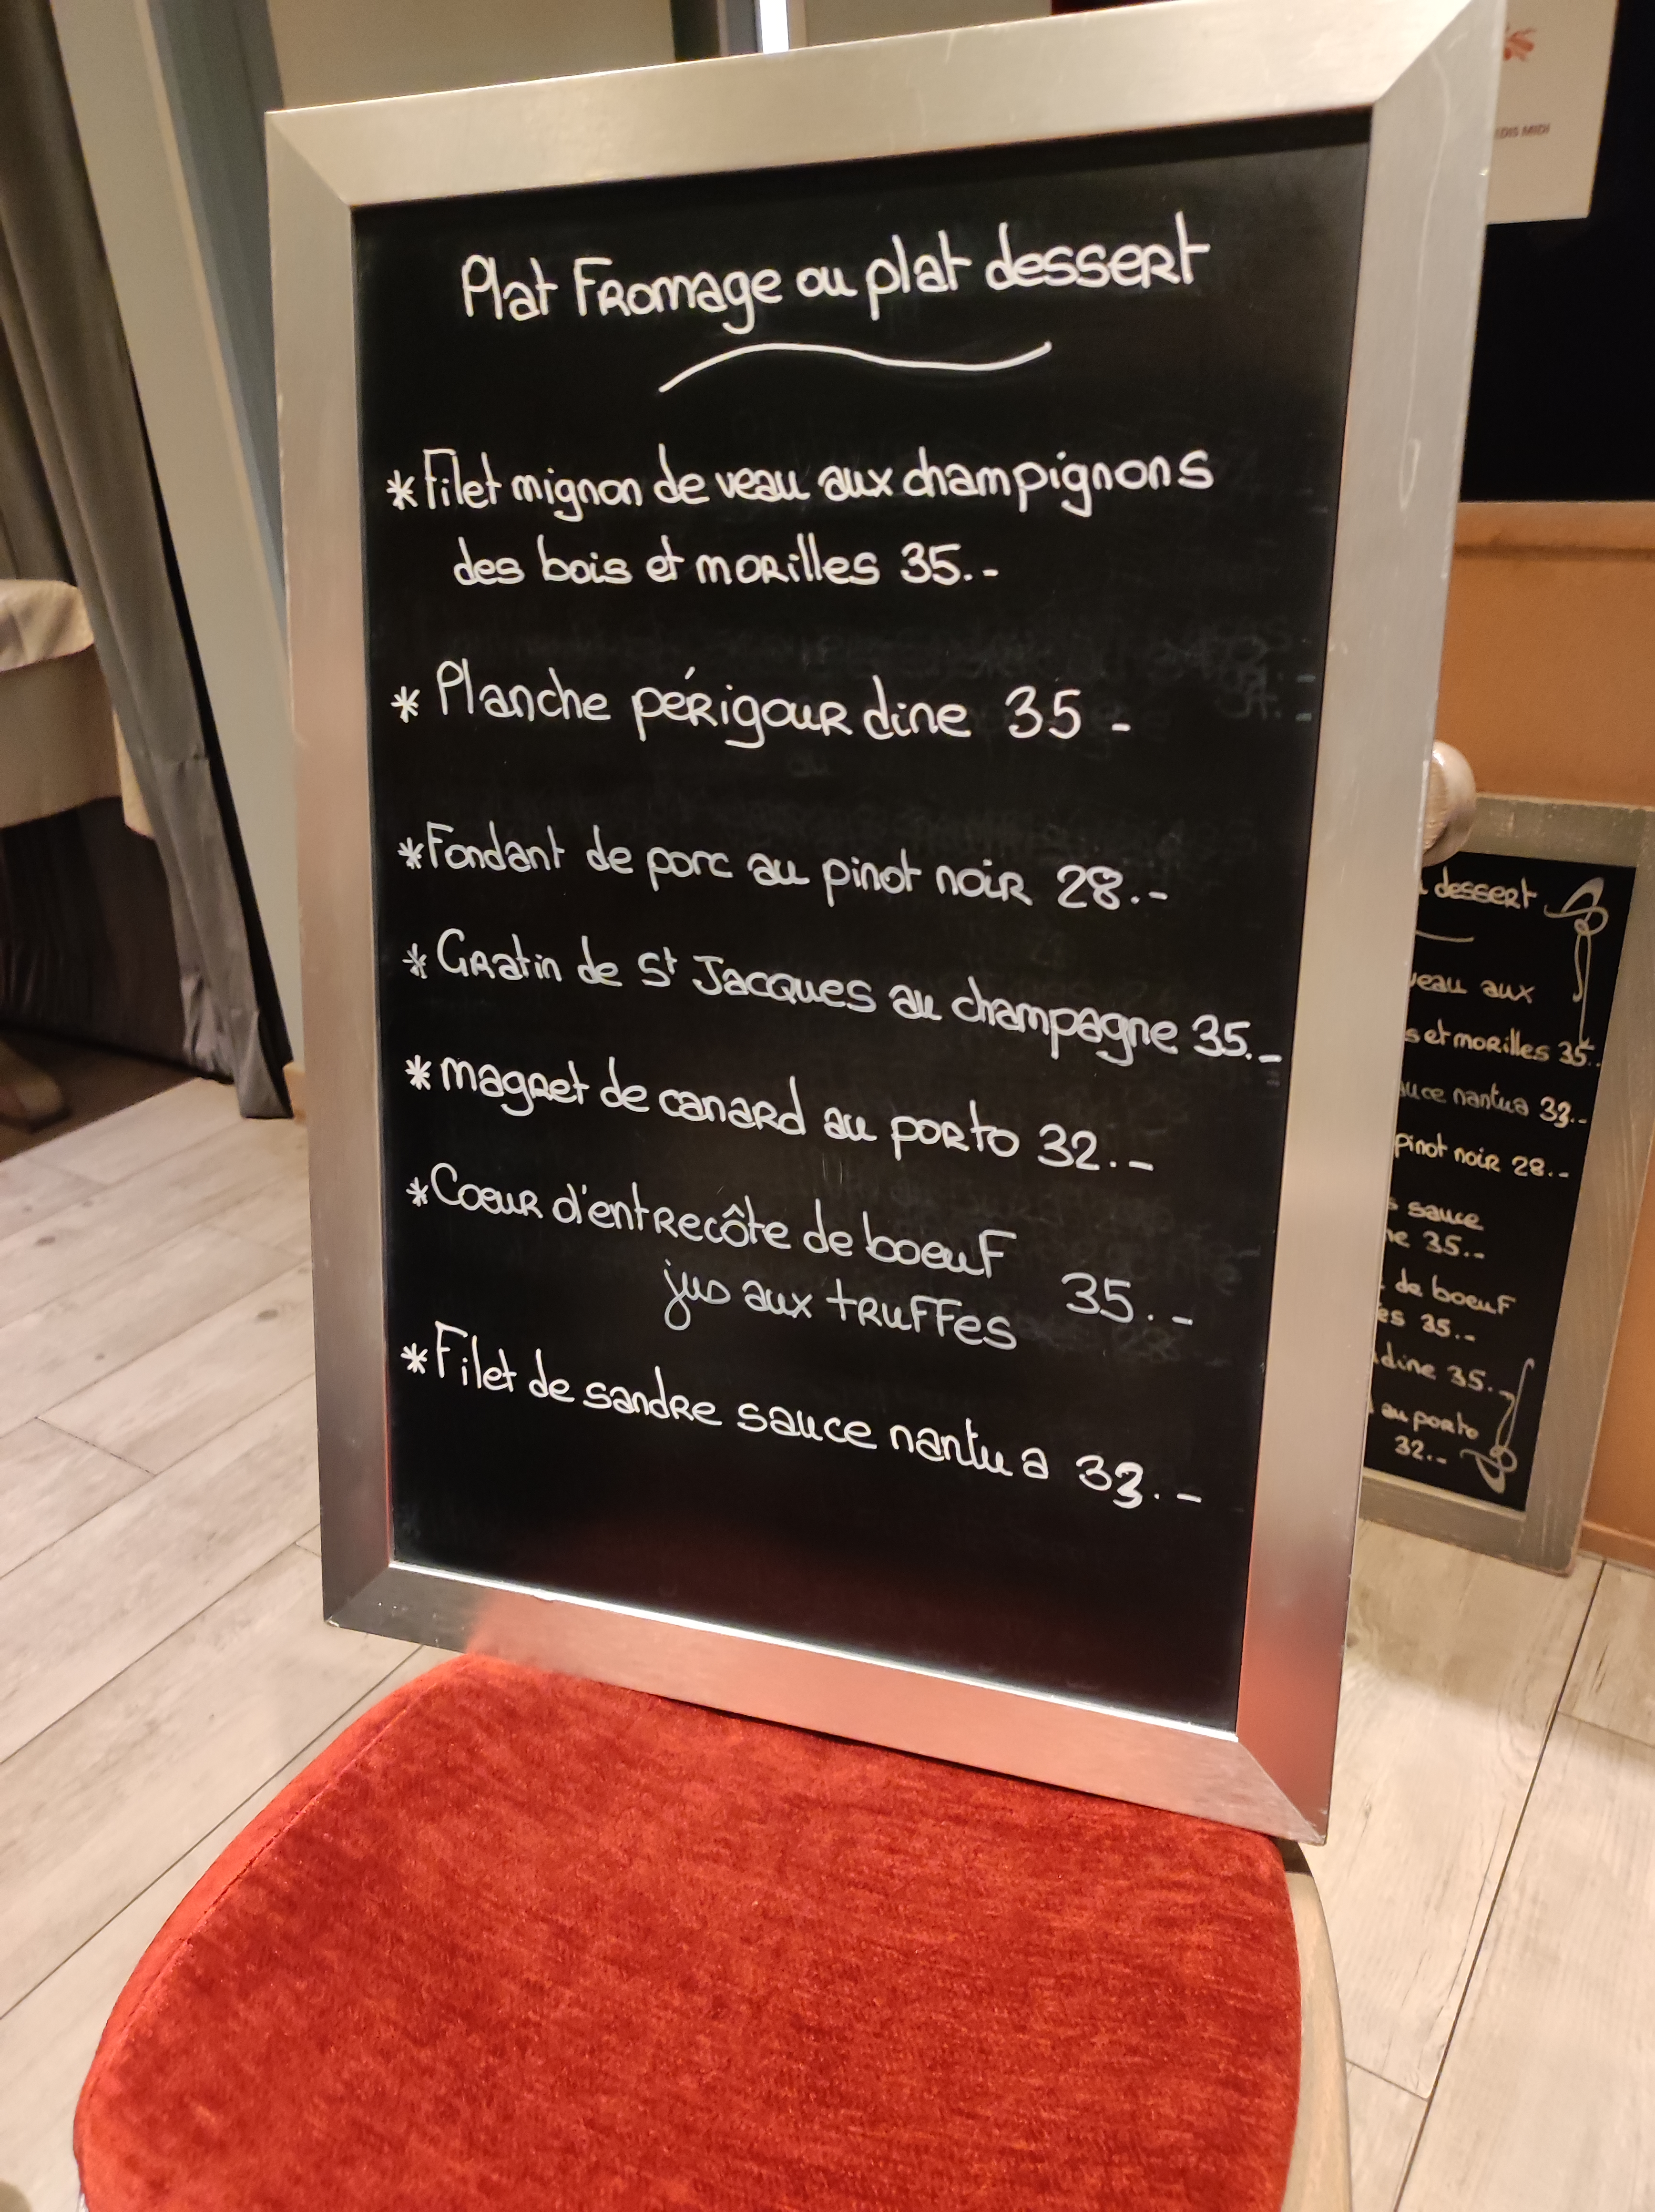 Plat Fromage ou plat dessert
* Filet mignon de veau aux champignons
des bois et morilles 35.-
* Planche périgourdine 35 -
* Fondant de porc au pinot noir 28.-
* Gratin de St Jacques au champagne 35.-
* magret de canard au porto 32.-
* Coeur d'entrecôte de boeuf
jus aux truffes 35.-
* Filet de sandre sauce nantua 33.-
MIDI
dessert
eau aux
s et morilles 35.
uce nantua 33.-
pinot noir 28.-
s sauce
ne 35.-
de boeuf
es 35.-
dine 35.-
au porto
32.-